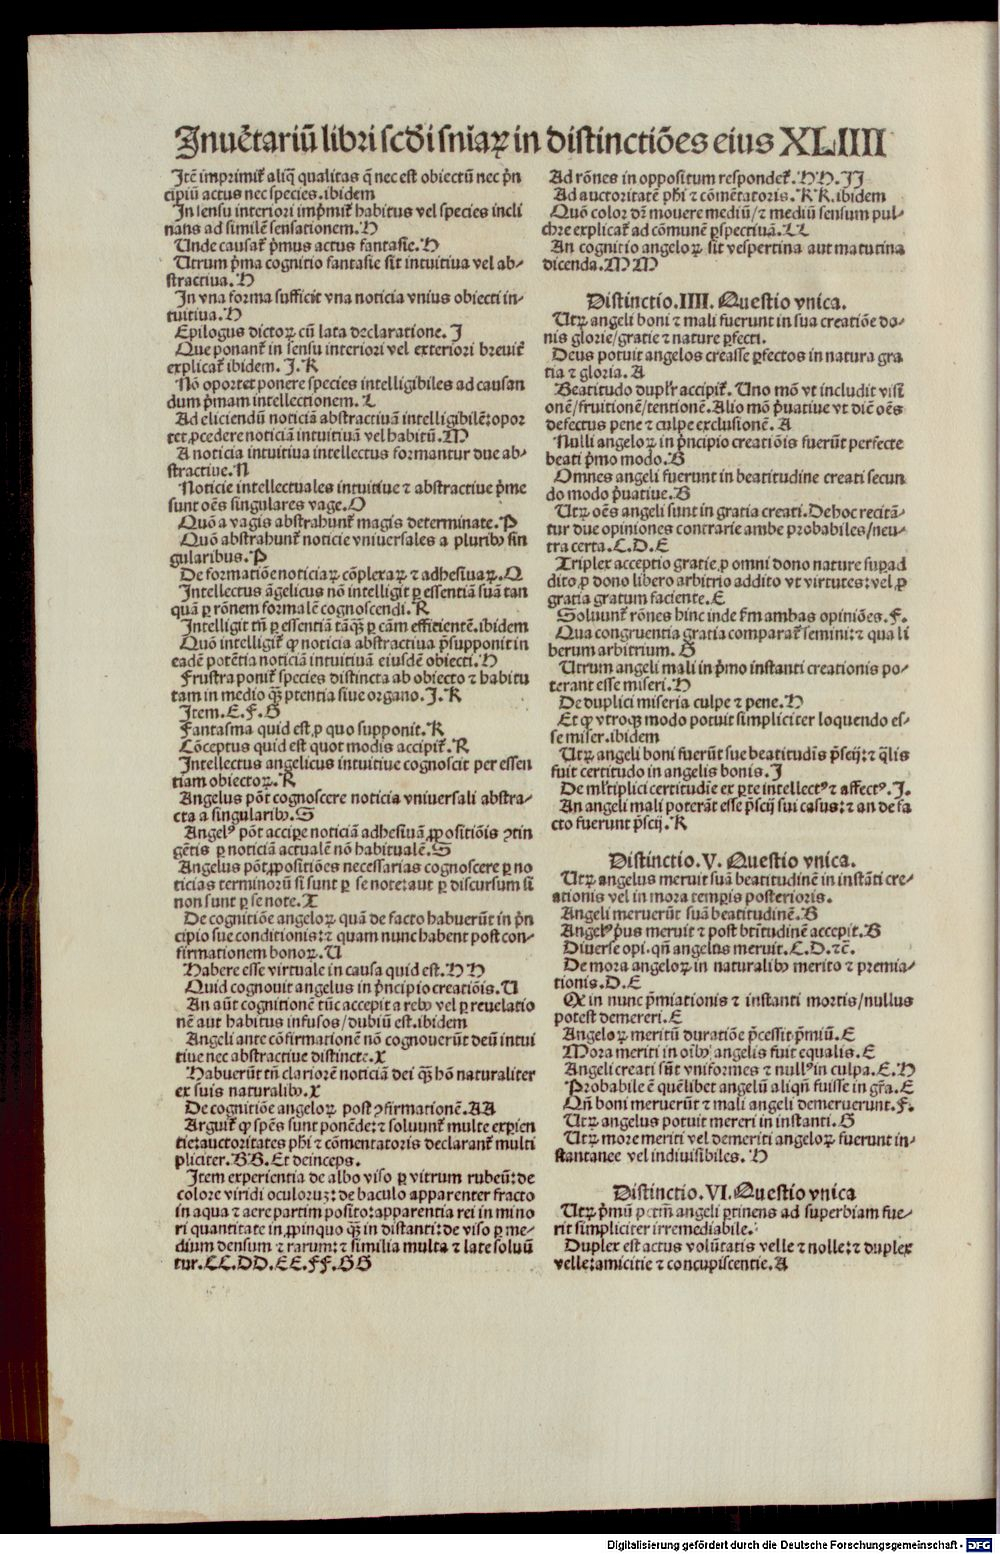 Inuẽtariũ libri scd̓i sniaꝝ in distinctiões eius XLIIII
Itẽ imprimit᷑ aliq̃ qualitas q̃ nec est obiectũ nec p̃n
cipiũ actus nec species. ibidem
In sensu interiori imp̃mit᷑ habitus vel species incli
nans ad similẽ sensationem. H
Unde causat᷑ p̃mus actus fantasie. H
Utrum p̃ma cognitio fantasie sit intuitiua vel ab⸗
stractiua. H
In vna forma sufficit vna noticia vnius obiecti in⸗
tuitiua. H
Epilogus dictoꝝ cũ lata declaratione. I
Que ponant᷑ in sensu interiori vel exteriori breuit᷑
explicat᷑ ibidem. J. K
Nõ oportet ponere species intelligibiles ad causan
dum p̃mam intellectionem. L
Ad eliciendũ noticiã abstractiuã intelligibilẽ: opor
tet ꝓcedere noticiã intuitiuã vel habitũ. M
A noticia intuitiua intellectus formantur due ab⸗
stractiue. N
Noticie intellectuales intuitiue ⁊ abstractiue p̃me
sunt oẽs singulares vage. O
Quõ a vagis abstrahunt᷑ magis determinate. P
Quõ abstrahunt᷑ noticie vniuersales a pluribꝰ sin
gularibus. P
De formatiõe noticiaꝝ cõplexaꝝ ⁊ adhesiuaꝝ. Q
Intellectus ãgelicus nõ intelligit ꝑ essentiã suã tan
quã ꝑ rõnem formalẽ cognoscendi. R
Intelligit tñ ꝑ essentiã tãq̃ꝫ ꝑ cãm efficientẽ. ibidem
Quõ intelligit᷑ ꝙ noticia abstractiua p̃supponit in
eadẽ potẽtia noticiã intuitiuã eiusdẽ obiecti. H
Frustra ponit᷑ species distincta ab obiecto ⁊ habitu
tam in medio q̃ꝫ ptentia siue organo. J. K
Item. E. F. G
Fantasma quid est, ꝓ quo supponit. K
Cõceptus quid est quot modis accipit᷑. R
Intellectus angelicus intuitiue cognoscit per essen
tiam obiectoꝝ. R
Angelus põt cognoscere noticia vniuersali abstra⸗
cta a singularibꝰ. S
Angelꝰ põt accipe noticiã adhesiuã ꝓpositiõis ꝯtin
gẽtis ꝑ noticiã actualẽ nõ habitualẽ. S
Angelus põt ꝓpositiões necessarias cognoscere ꝑ no
ticias terminorũ si sunt ꝑ se note: aut ꝑ discursum si
non sunt ꝑ se note. T
De cognitiõe angeloꝝ quã de facto habuerũt in p̃n
cipio sue conditionis: ⁊ quam nunc habent post con⸗
firmationem bonoꝝ. U
Habere esse virtuale in causa quid est. HH
Quid cognouit angelus in p̃ncipio creatiõis. U
An aũt cognitionẽ tũc accepit a rebꝰ vel ꝑ reuelatio
nẽ aut habitus infusos/ dubiũ est. ibidem
Angeli ante cõfirmationẽ nõ cognouerũt deũ intui
tiue nec abstractiue distincte. X
Habuerũt tñ clariorẽ noticiã dei q̃ꝫ hõ naturaliter
ex suis naturalibꝰ. X
De cognitiõe angeloꝝ post ꝯfirmationẽ. AA
Arguit᷑ ꝙ spẽs sunt ponẽde: ⁊ soluunt᷑ multe exꝑien
tie: auctoritates phi ⁊ cõmentatoris declarant᷑ multi
pliciter. BB. Et deinceps.
Item experientia de albo viso ꝑ vitrum rubeũ: de
colore viridi oculoruꝫ: de baculo apparenter fracto
in aqua ⁊ aere partim posito: apparentia rei in mino
ri quantitate in ꝓpinquo q̃ꝫ in distanti: de viso ꝑ me⸗
dium densum ⁊ rarum: ⁊ similia multa ⁊ late soluũ
tur. CC. DD. EE. FF. GG
Ad rõnes in oppositum respondet᷑. HH. II
Ad auctoritatẽ phi ⁊ cõmẽtatoris. KK. ibidem
Quõ color dꝫ mouere mediũ/ ⁊ mediũ sensum pul⸗
chre explicat᷑ ad cõmunẽ ꝑspectiuã. LL
An cognitio angeloꝝ sit vespertina aut matutina
dicenda. MM
Distinctio. IIII. Questio vnica.
Utꝝ angeli boni ⁊ mali fuerunt in sua creatiõe do⸗
nis glorie/ gratie ⁊ nature ꝑfecti.
Deus potuit angelos creasse ꝑfectos in natura gra
tia ⁊ gloria. A
Beatitudo duplr̃ accipit᷑. Uno mõ vt includit visi
onẽ/ fruitionẽ/ tentionẽ. Alio mõ p̃uatiue vt dic̃ oẽs
defectus pene ⁊ culpe exclusionẽ. A
Nulli angeloꝝ in p̃ncipio creatiõis fuerũt perfecte
beati p̃mo modo. B
Omnes angeli fuerunt in beatitudine creati secun
do modo p̃uatiue. B
Utꝝ oẽs angeli sunt in gratia creati. De hoc recitã⸗
tur due opiniones contrarie ambe probabiles/ neu⸗
tra certa. C. D. E
Triplex acceptio gratie, ꝓ omni dono nature suꝑad
dito, ꝓ dono libero arbitrio addito vt virtutes: vel ꝓ
gratia gratum faciente. E
Soluunt᷑ rõnes hinc inde fm ambas opiniões. F.
Qua congruentia gratia comparat᷑ semini: ⁊ qua li
berum arbitrium. G
Utrum angeli mali in p̃mo instanti creationis po⸗
terant esse miseri. H
De duplici miseria culpe ⁊ pene. H
Et ꝙ vtroqꝫ modo potuit simpliciter loquendo es⸗
se miser. ibidem
Utꝝ angeli boni fuerũt sue beatitudis p̃scij: ⁊ q̃lis
fuit certitudo in angelis bonis. I
De mltiplici certitudie ex ꝑte intellectꝰ ⁊ affectꝰ. I.
An angeli mali poterãt esse p̃scij sui casus: ⁊ an de fa
cto fuerunt p̃scij. K
Distinctio. V. Questio vnica.
Utꝝ angelus meruit suã beatitudinẽ in instãti cre⸗
ationis vel in mora temꝑis posterioris.
Angeli meruerũt suã beatitudinẽ. B
Angelꝰ p̃us meruit ⁊ post btĩtudinẽ accepit. B
Diuerse opi. qñ angelus meruit. C. D. ⁊c̃.
De mora angeloꝝ in naturalibꝰ merito ⁊ premia⸗
tionis. D. E
Qꝫ in nunc p̃miationis ⁊ instanti mortis/ nullus
potest demereri. E
Angeloꝝ meritũ duratiõe p̃cessit p̃miũ. E
Mora meriti in oĩbꝰ angelis fuit equalis. E
Angeli creati sũt vniformes ⁊ nullꝰ in culpa. E. H
Probabile ẽ quẽlibet angelũ aliqñ fuisse in gr̃a. E
Qñ boni meruerũt ⁊ mali angeli demeruerunt. F.
Utꝝ angelus potuit mereri in instanti. G
Utꝝ more meriti vel demeriti angeloꝝ fuerunt in⸗
stantanee vel indiuisibiles. H
Distinctio. VI. Questio vnica
Utꝝ p̃mũ pctm̃ angeli ꝑtinens ad superbiam fue⸗
rit simpliciter irremediabile.
Duplex est actus volũtatis velle ⁊ nolle: ⁊ duplex
velle: amicitie ⁊ concupiscentie. A
Digitalisierung gefördert durch die Deutsche Forschungsgemeinschaft - DFG